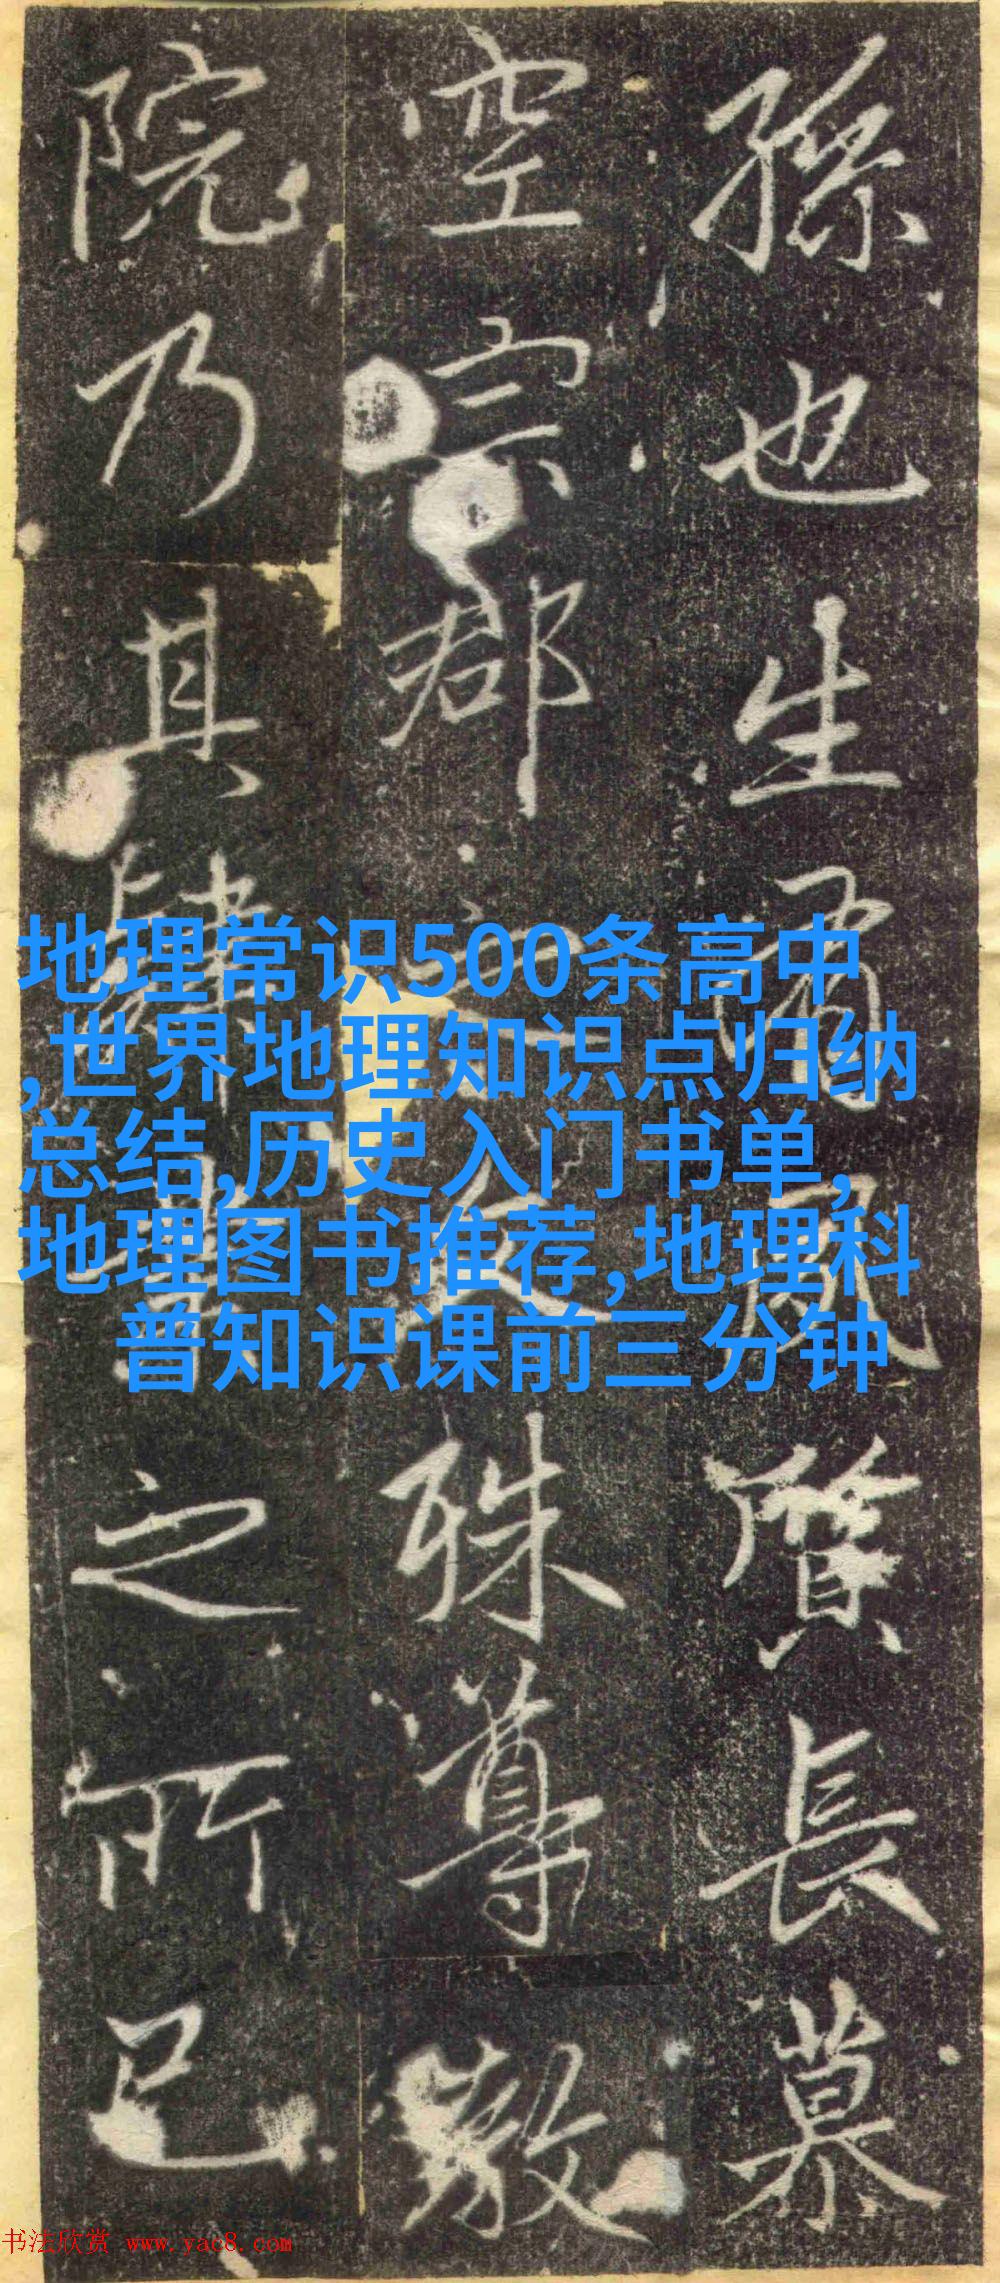 孫也生風質長慕
空宗郡殊尊敬
院乃其之所已
地理常识500条高中
,世界地理知识点归纳
总结,历史入门书单,
地理图书推荐,地理科
普知识课前三分钟
书法欣赏 www.yac8.com